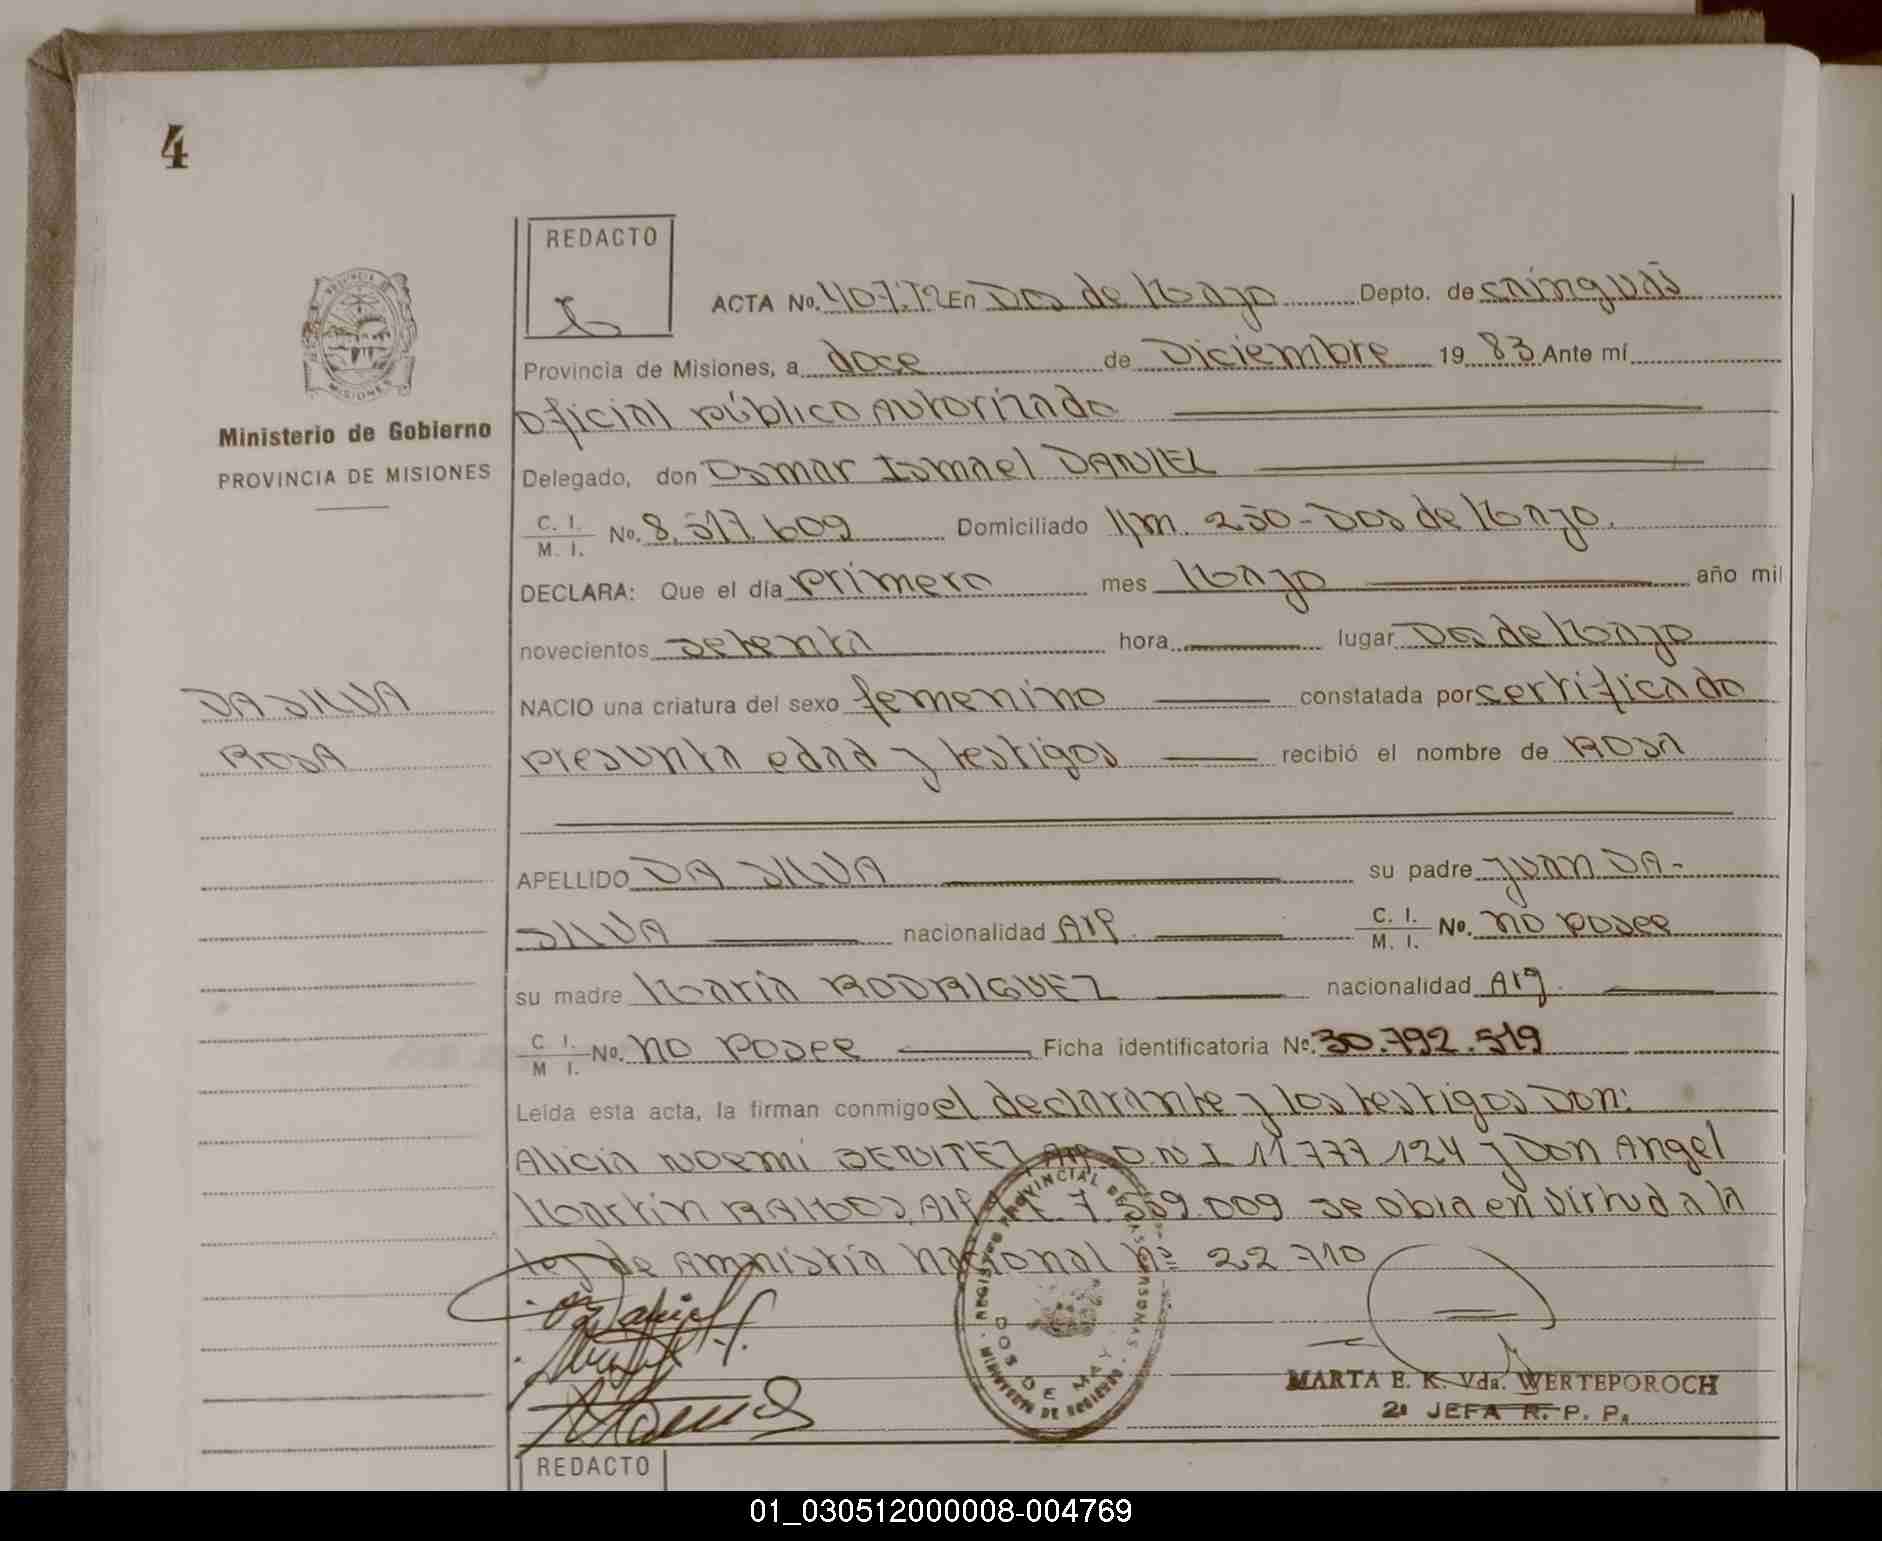 4
REDACTO
ACTA No. 407.T2 En Dos de Mayo Depto. de Cainguás
Provincia de Misiones, a doce de Diciembre 19 83 Ante mí
Oficial público Autorizado
Ministerio de Gobierno
PROVINCIA DE MISIONES
Delegado, don Osmar Ismael DANIEL
C. I. / M. I. No. 8.517.609 Domiciliado Km. 250 - Dos de Mayo.
DECLARA: Que el día primero mes Mayo año mil
novecientos setenta hora lugar Dos de Mayo
DA SILVA
NACIO una criatura del sexo femenino constatada por certificado
ROSA
presunta edad y testigos recibió el nombre de ROSA
APELLIDO DA SILVA su padre Juan DA-
SILVA nacionalidad Arg. C. I. / M. I. No. no posee
su madre María RODRIGUEZ nacionalidad Arg.
C I. / M I. No. no posee Ficha identificatoria No. 30.792.519
Leída esta acta, la firman conmigo el declarante y los testigos Don:
Alicia Noemi BENITEZ Arg. D.N.I 11.777.124 y Don Angel
Martín RAMOS, Arg 7.559.009 se obra en virtud a la
ley de Amnistía Nacional Nº 22.710
REGISTRO PROVINCIAL DE LAS PERSONAS
DOS DE MAYO
MINISTERIO DE GOBIERNO
MARTA E. K. Vda. WERTEPOROCH
2a JEFA R. P. P.
REDACTO
01_030512000008-004769